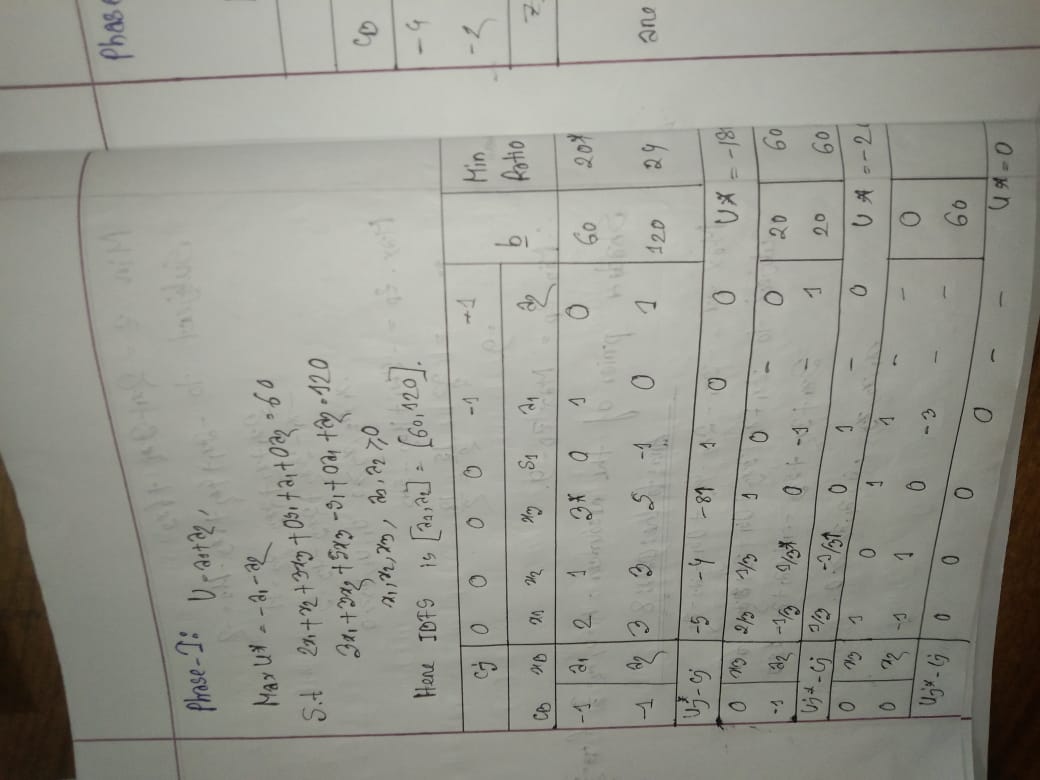 Phase-I: U = a1+a2,
Max U* = -a1-a2
S.t 2x1+x2+3x3+0s1+a1+0a2=60
3x1+3x2+5x3-s1+0a1+a2=120
x1,x2,x3, a1,a2≥0
Here IBFS is [a1,a2] = [60,120].
Cj 0 0 0 0 -1 -1 b Min Ratio
CB xB x1 x2 x3 s1 a1 a2
-1 a1 2 1 3* 0 1 0 60 20*
-1 a2 3 3 5 -1 0 1 120 24
Uj*-Cj -5 -4 -8↑ 1 0 0 U* = -18
0 x3 2/3 1/3 1 0 - 0 20 60
-1 a2 -1/3 4/3* 0 -1 - 1 20 60
Uj*-Cj 1/3 0 1 - 0 U* = -2
0 x3 1 0 1 1 - - 0
0 x2 -1 1 0 -3 - - 60
Uj*-Cj 0 0 0 0 - - U* = 0
Phase
CB
-4
-2
Z